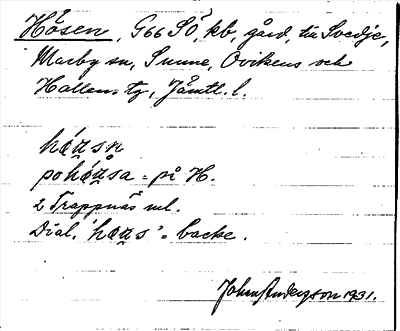 Håsen, G66 SÖ, kb, gård, till Svedje,
Marby sn, Sunne, Ovikens och
Hallens tg, Jämtl. l.
håusn
po håusa = på H.
2 Trappnäs ml.
Dial. 'haus' = backe.
Johan Anderson 1931.